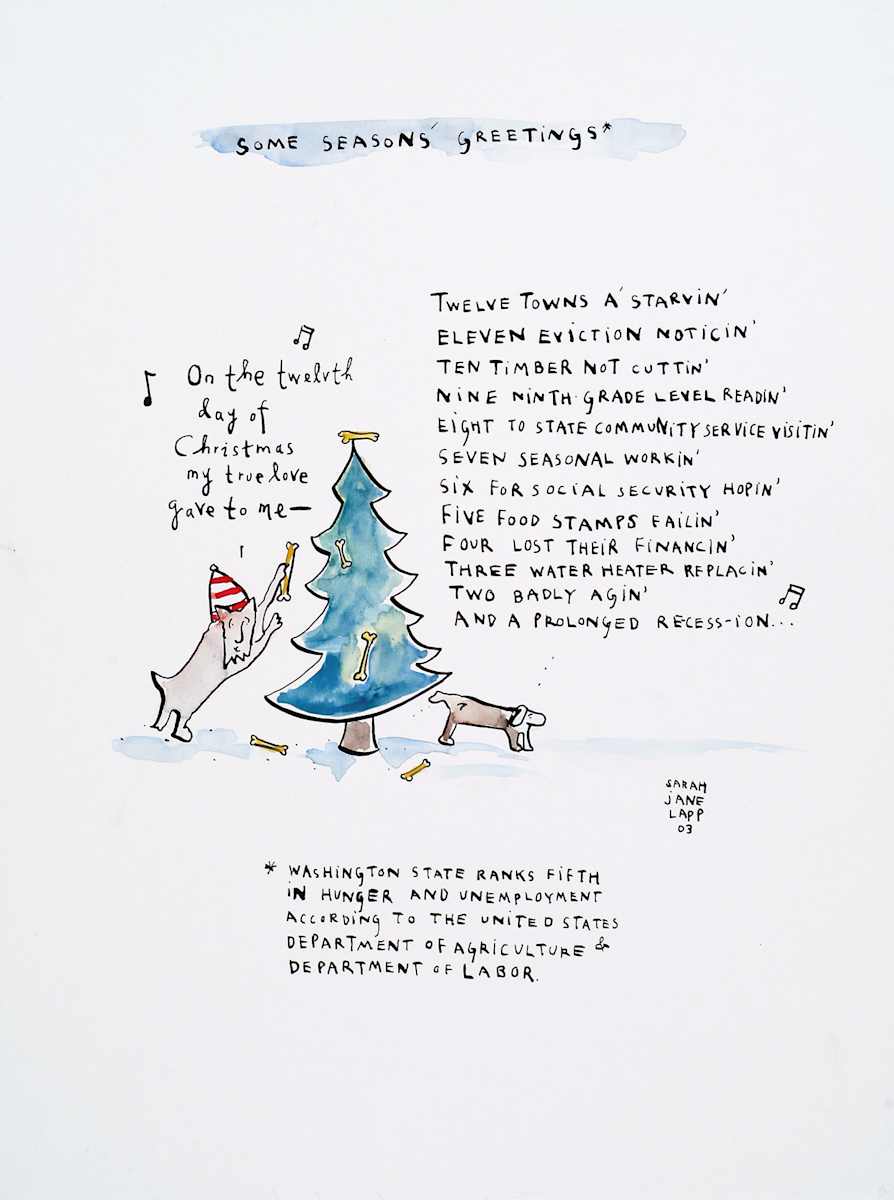 SOME SEASONS' GREETINGS*
On the twelvth
day of
Christmas
my true love
gave to me—
TWELVE TOWNS A' STARVIN'
ELEVEN EVICTION NOTICIN'
TEN TIMBER NOT CUTTIN'
NINE NINTH-GRADE LEVEL READIN'
EIGHT TO STATE COMMUNITY SERVICE VISITIN'
SEVEN SEASONAL WORKIN'
SIX FOR SOCIAL SECURITY HOPIN'
FIVE FOOD STAMPS FAILIN'
FOUR LOST THEIR FINANCIN'
THREE WATER HEATER REPLACIN'
TWO BADLY AGIN'
AND A PROLONGED RECESS-ION...
SARAH
JANE
LAPP
03
* WASHINGTON STATE RANKS FIFTH
IN HUNGER AND UNEMPLOYMENT
ACCORDING TO THE UNITED STATES
DEPARTMENT OF AGRICULTURE &
DEPARTMENT OF LABOR.